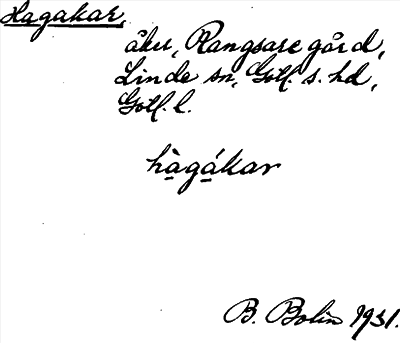 Hagakar,
åker, Rangsare gård,
Linde sn, Gotl. s. hd,
Gotl. l.
hàgákar
B. Bolin 1931.